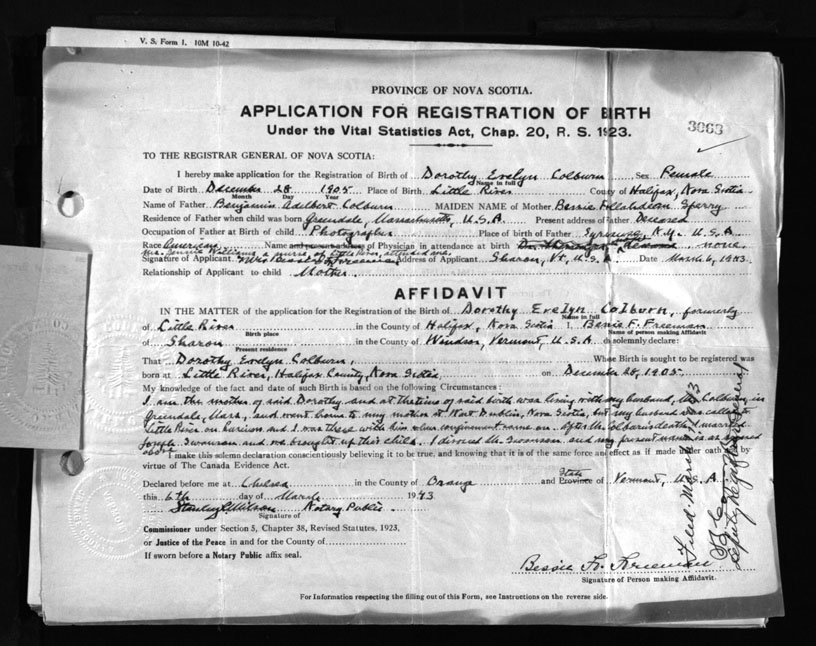 V. S. Form 1. 10M 10-42
PROVINCE OF NOVA SCOTIA.
APPLICATION FOR REGISTRATION OF BIRTH
Under the Vital Statistics Act, Chap. 20, R. S. 1923.
3063
TO THE REGISTRAR GENERAL OF NOVA SCOTIA:
I hereby make application for the Registration of Birth of Dorothy Evelyn Colburn Sex Female
Name in full
Date of Birth December 28 1905 Place of Birth Little River County of Halifax, Nova Scotia
Month Day Year
Name of Father Benjamin Adelbert Colburn MAIDEN NAME of Mother Bessie Sperry
Residence of Father when child was born Greendale, Massachusetts, U.S.A. Present address of Father Deceased
Occupation of Father at Birth of child Photographer Place of birth of Father Syracuse, N.Y. U.S.A
Race American Name and present address of Physician in attendance at birth none.
Mrs. Jennie Williams a nurse, of Little River, attended me.
Signature of Applicant Mrs Bessie Address of Applicant Sharon, Vt, U.S.A. Date March 6, 1943.
Relationship of Applicant to child Mother
AFFIDAVIT
IN THE MATTER of the application for the Registration of the Birth of Dorothy Evelyn Colburn, formerly
Name in full
of Little River in the County of Halifax, Nova Scotia I, Bessie F. Freeman
Birth place Name of person making Affidavit
of Sharon in the County of Windsor, Vermont, U.S.A do solemnly declare:
Present residence
That Dorothy Evelyn Colburn, Whose Birth is sought to be registered was
born at Little River, Halifax County, Nova Scotia on December 28, 1905.
My knowledge of the fact and date of such Birth is based on the following Circumstances:
I am the mother of said Dorothy and at the time of said birth was living with my husband, Mr. Colburn, in
Greendale, Mass, and went home to my mother at West Dublin, Nova Scotia, but my husband was called to
Little River on business and I was there with him when confinement came on. After Mr. Colburn's death I married
Joseph Swanson and we brought up this child. I divorced Mr. Swanson and my present name is as signed
above
I make this solemn declaration conscientiously believing it to be true, and knowing that it is of the same force and effect as if made under oath by
virtue of The Canada Evidence Act.
Declared before me at Chelsea in the County of Orange and State Province of Vermont, U.S.A.
this 6th day of March 1943
Stanley C. Wilson Notary Public
Signature of
Commissioner under Section 5, Chapter 38, Revised Statutes, 1923,
or Justice of the Peace in and for the County of
If sworn before a Notary Public affix seal.
Bessie F. Freeman
Signature of Person making Affidavit.
For Information respecting the filling out of this Form, see Instructions on the reverse side.
Filed
Deputy Registrar General